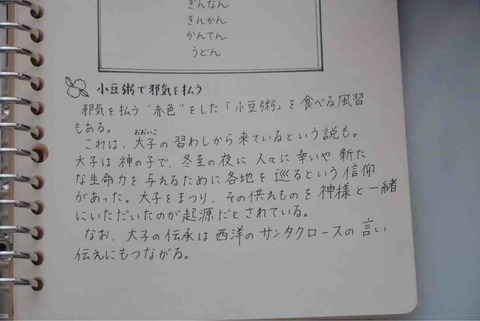 ぎんなん
きんかん
かんてん
うどん
小豆粥で邪気を払う
邪気を払う"赤色"をした「小豆粥」を食べる風習
もある。
おおいこ
これは、大子の習わしから来ているという説も。
大子は神の子で、冬至の夜に人々に幸いや新た
な生命力を与えるために各地を巡るという信仰
があった。大子をまつり、その供えものを神様と一緒
にいただいたのが起源だとされている。
なお、大子の伝承は西洋のサンタクロースの言い
伝えにもつながる。